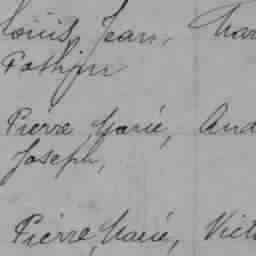 Louis, Jean,
Pierre Marie, And
Joseph,
Pierre, Marie, Vict